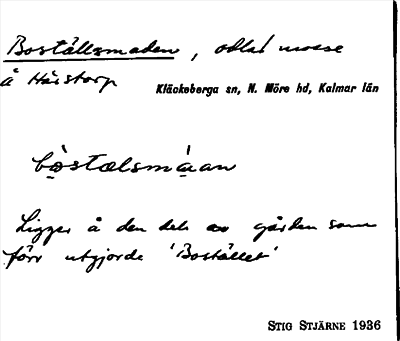 Boställsmaden, odlad mosse
å Härstorp
Kläckeberga sn, N. Möre hd, Kalmar län
bòstælsmàan
Ligger å den del av gården som
förr utgjorde 'Bostället'
STIG STJÄRNE 1936